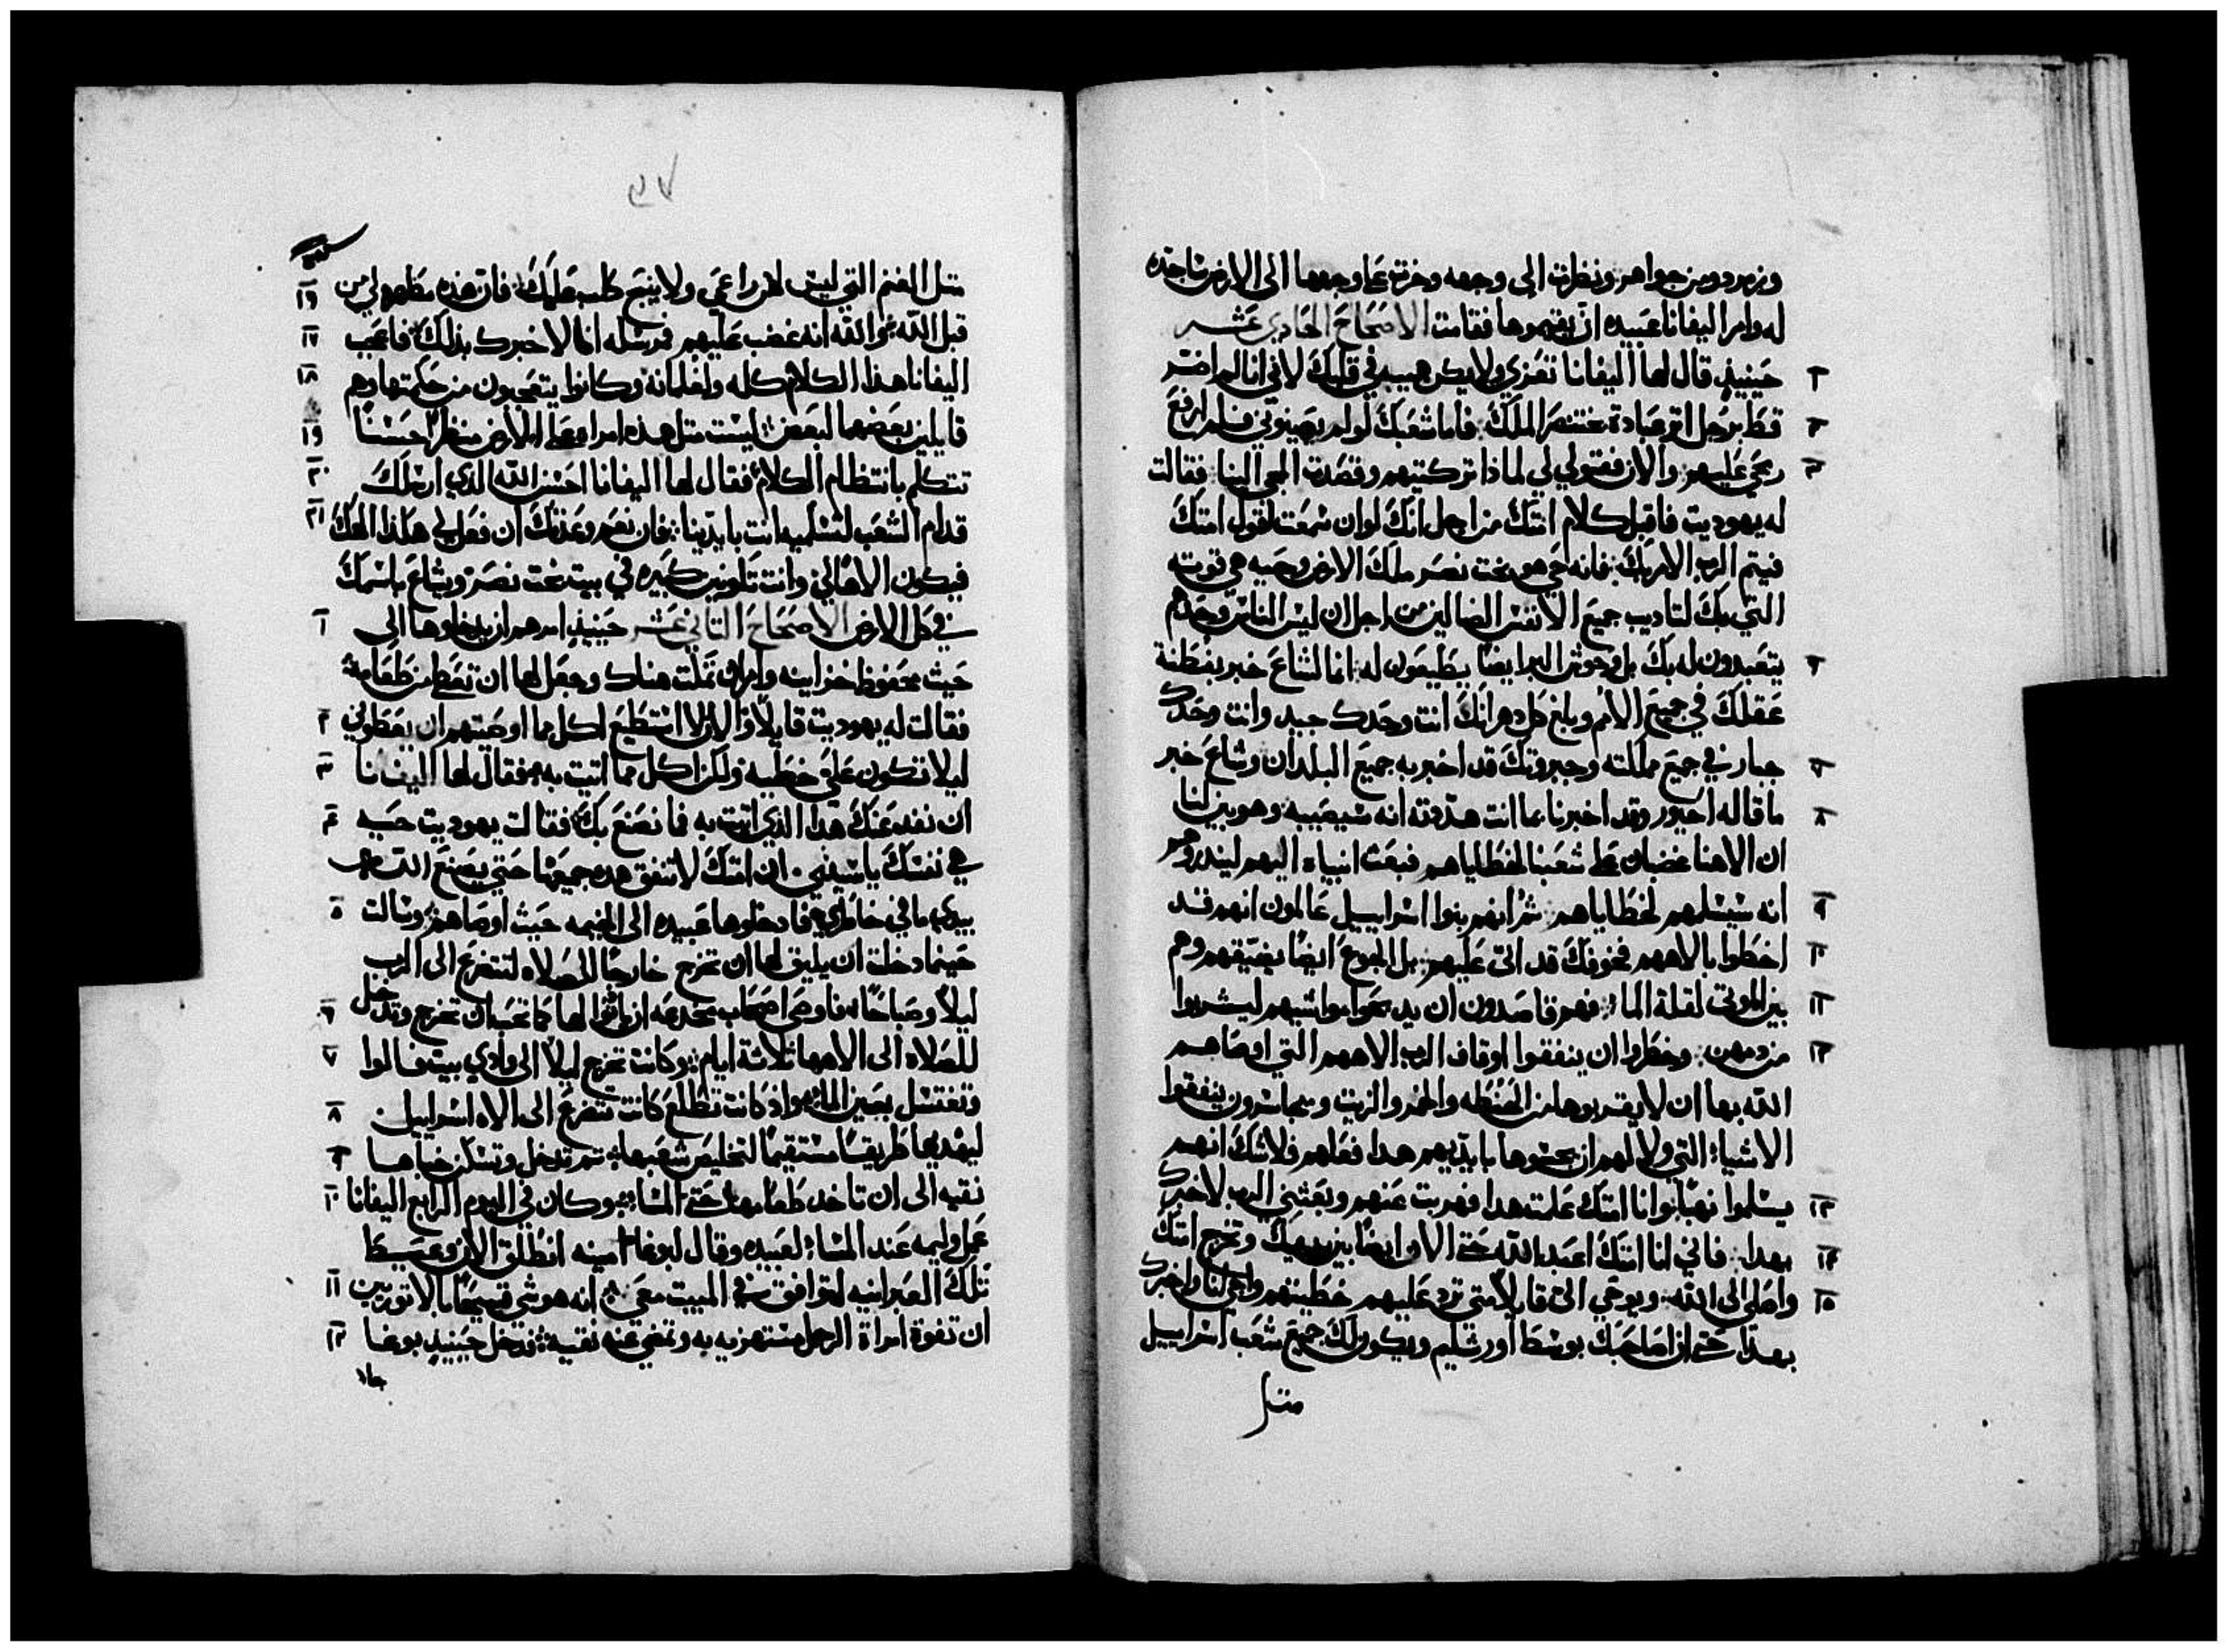 وزمرد ومن جواهر ونظرت الى وجهه وخرت على وجهها الى الارض ساجده
له وامر اليفانا عبيده ان يقيموها فقامت الاصحاح الحادي عشر
حينيذٍ قال لها اليفانا تعزي ولا يكن هيبه في قلبك لاني انا لم اضر ٢
قط برجل اثر عبادة بختنصر الملك فاما شعبك لو لم يهينوني فلم ارفع
رمحي عليهم والان فقولي لي لماذا تركتيهم وقصدت المجي الينا فقالت
له يهوديت فاقبل كلام امتك من اجل انك لو ان سمعت لقول امتك
فيتم الرب الامر بك فانه حي هو بخت نصر ملك الارض وحيه هي قوته
التي بك لتاديب جميع الانفس الضالين من اجل ان ليس الناس وحدهم
يتعبدون له بك بل وحوش البر ايضًا يطيعون له انما لشاع خبر بفطنة
عقلك في جميع الامم وبلغ كل دهر انك انت وحدك جيد وانت وحدك
جبار في جميع مملكته وجبروتك قد اخبر به جميع البلدان وشاع خبر
ما قاله احيور وقد اخبرنا بما انت هددته انه سيصيبه وهو يبين لنا ٨
ان الاهنا غضبان على شعبنا لخطاياهم فبعث انبياء اليهم لينذروهم
انه سيسلمهم لخطاياهم ثم انهم بنوا اسراييل عالمون انهم قد ٩
اخطوا بالاههم فخوفك قد اتى عليهم بل الجوع ايضًا يضيقهم وهم ١٠
بين الموتى لقلة الماء فهم قاصدون ان يدبحوا مواشيهم ليشربوا ١١
من دمهن وخطروا ان ينفقوا اوقاف الرب الاههم التي اوصاهم ١٢
الله بها ان لا يقربوها من الحنطه والخمر والزيت وسيجاسرون ينفقوا
الاشياء التي ولا لهم ان يمسوها بايديهم هدا فعلهم فلا شك انهم
يسلموا نهبًا وانا امتك علمت هدا فهربت عنهم وبعثني الرب لاخبرك ١٣
بهدا فاني انا امتك اعبد الله حتى الان ايضًا بين يديك وتخرج امتك ١٤
واصلي الى الله ويوحي الي قايلًا متى ترد عليهم خطيتهم واجي لنا واخبرك ١٥
بهدا حتى ان اصاحبك بوسط اورشليم ويكون لك جميع شعب اسراييل
متل
٩٧
متل الغنم التي ليس لهم راعي ولا ينبح كلب عليك فان هذه مظهوره لي من ١٦
قبل الله والله انه غضب عليهم فرسله انا لاخبرك بذلك فاعجب ١٧
اليفانا هذا الكلام كله ولغلمانه وكانوا يتعجبون من حكمتها وهم ١٨
قايلين بعضهما لبعض ليست متل هذه امراه على الارض منظرًا حسنًا ١٩
تتكلم بانتظام الكلام فقال لها اليفانا احسن الله الذي ارسلك ٢٠
قدام الشعب لتسلميه انت بايدينا فان نعم وعدتك ان فعل لي هكذا الهك ٢١
فيكون الاهًا لي وانت تكونين كبيره في بيت بخت نصر ويشاع باسمك
في كل الارض الاصحاح التاني عشر حينيذٍ امرهم ان يدخلوها الى ١
حيث محفوظ خزاينه وامر ان تمكت هناك وجعل لها ان تعطى من طعامه
فقالت له يهوديت قايلًا اذ الان لا استطيع اكل مما اوصيتهم ان يعطوني ٢
ليلا تكون علي خطيه ولكن اكل مما اتيت به فقال لها اليفانا ٣
ان نفد عنك هدا الذي اتيت به فما نصنع بك فقالت يهوديت حيه ٤
هي نفسك يا سيدي ان امتك لا تنفق هده جميعها حتى يصنع الله
بيدي ما في خاطري فادخلوها عبيده الى الخيمه حيث اوصاهم وسالت ٥
حينما دخلت ان يليق لها ان تخرج خارجًا للصلاه لتتضرع الى الرب
ليلًا وصباحًا فاوصى اصحاب مخدعه ان ياذنوا لها كما تحب ان تخرج وتدخل ٦
للصلاه الى الاهها ثلاثة ايام وكانت تخرج ليلًا الى وادي بيت فالوا ٧
وتغتسل بعين الماء واذ كانت تطلع كانت تتضرع الى الاه اسراييل ٨
ليهديها طريقًا مستقيمًا لتخليص شعبها تم تدخل وتسكن خباها ٩
نقيه الى ان تاخد طعامها حتى المساء وكان في اليوم الرابع اليفانا ١٠
عمل وليمه عند المساء لعبيده وقال لبوغا امينه انطلق الان وعسط
تلك العبرانيه لتوافق في المبيت معي انه هو شي قبيحًا بالاتوريين ١١
ان تفوت امراة الرجل مستهزيه به وتمضي عنه نقيه فدخل حينيذٍ بوغا ١٢